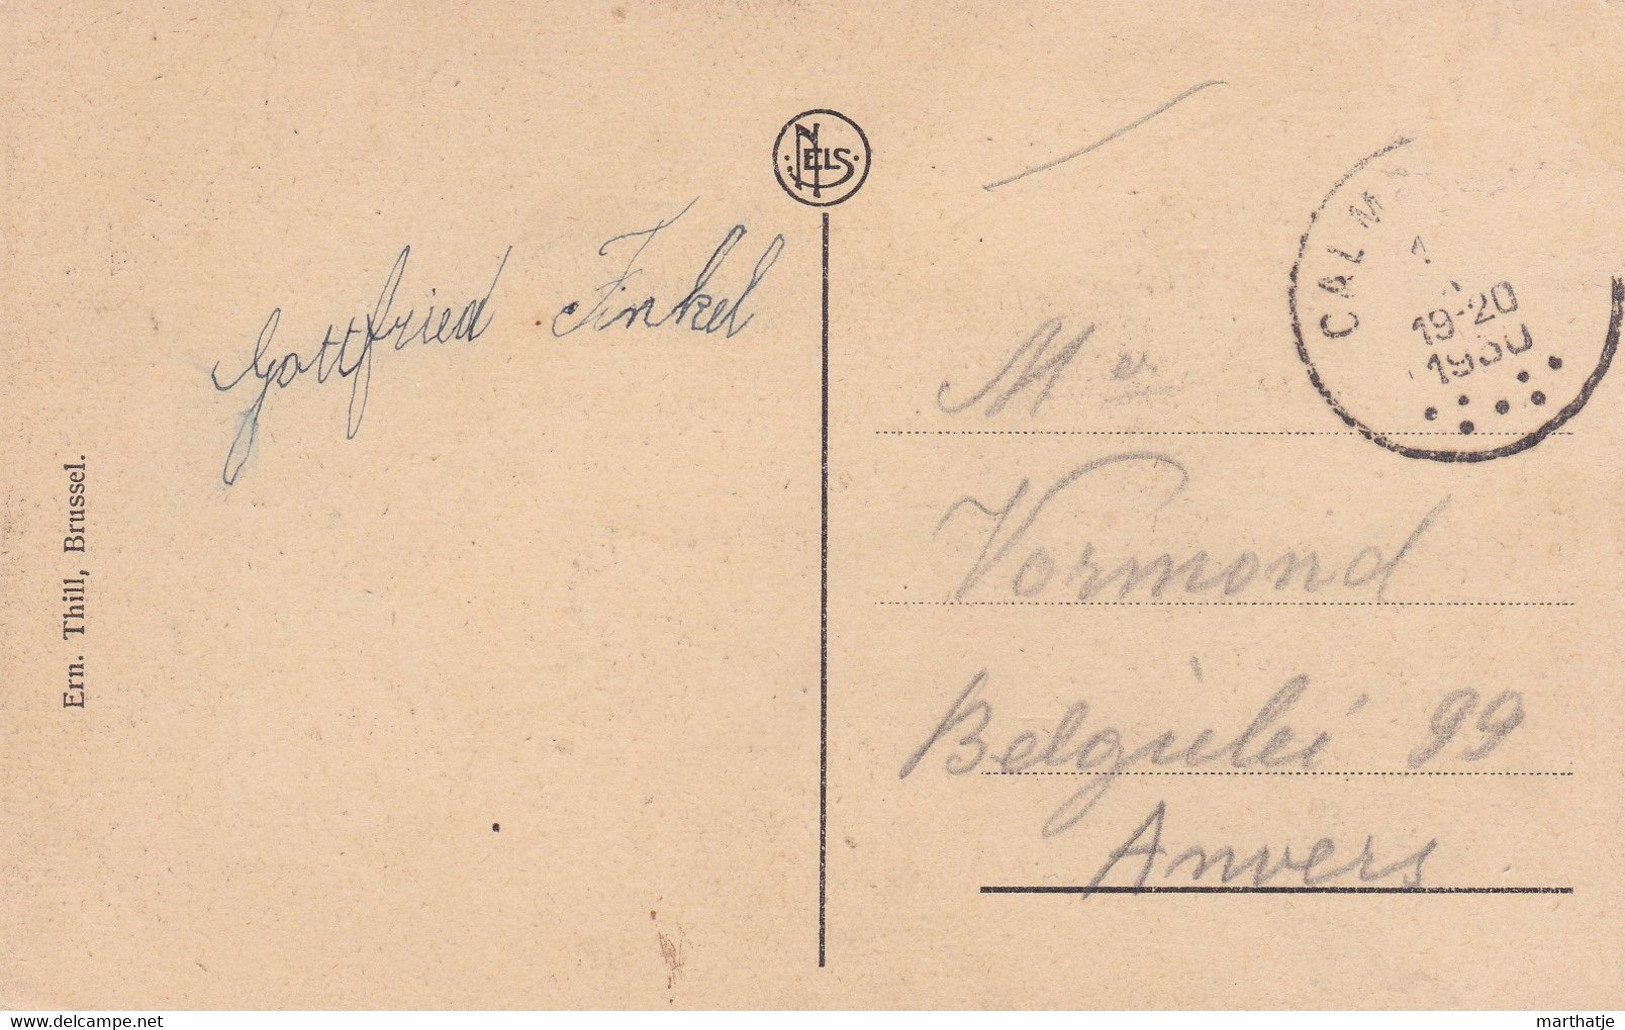 NELS
Gottfried Finkel
Ern. Thill, Brussel.
CALM
1
19-20
1930
Mer
Vormond
Belgiëlei 99
Anvers
www.delcampe.net
marthatje